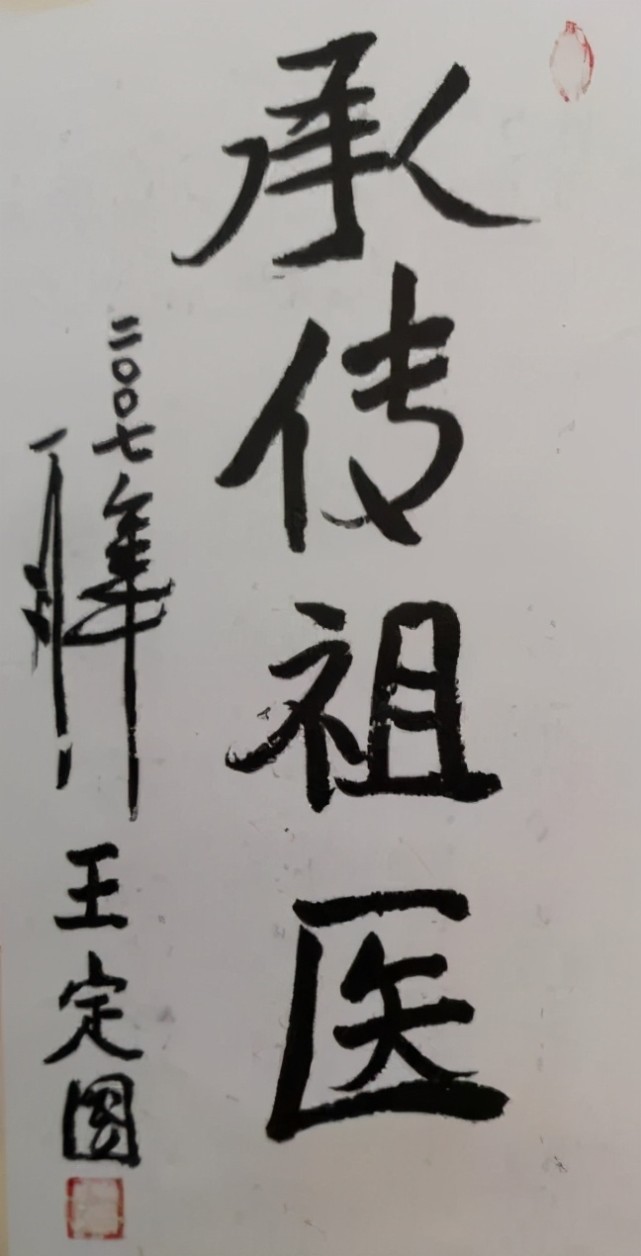 承传祖医
二〇〇七年
王定國